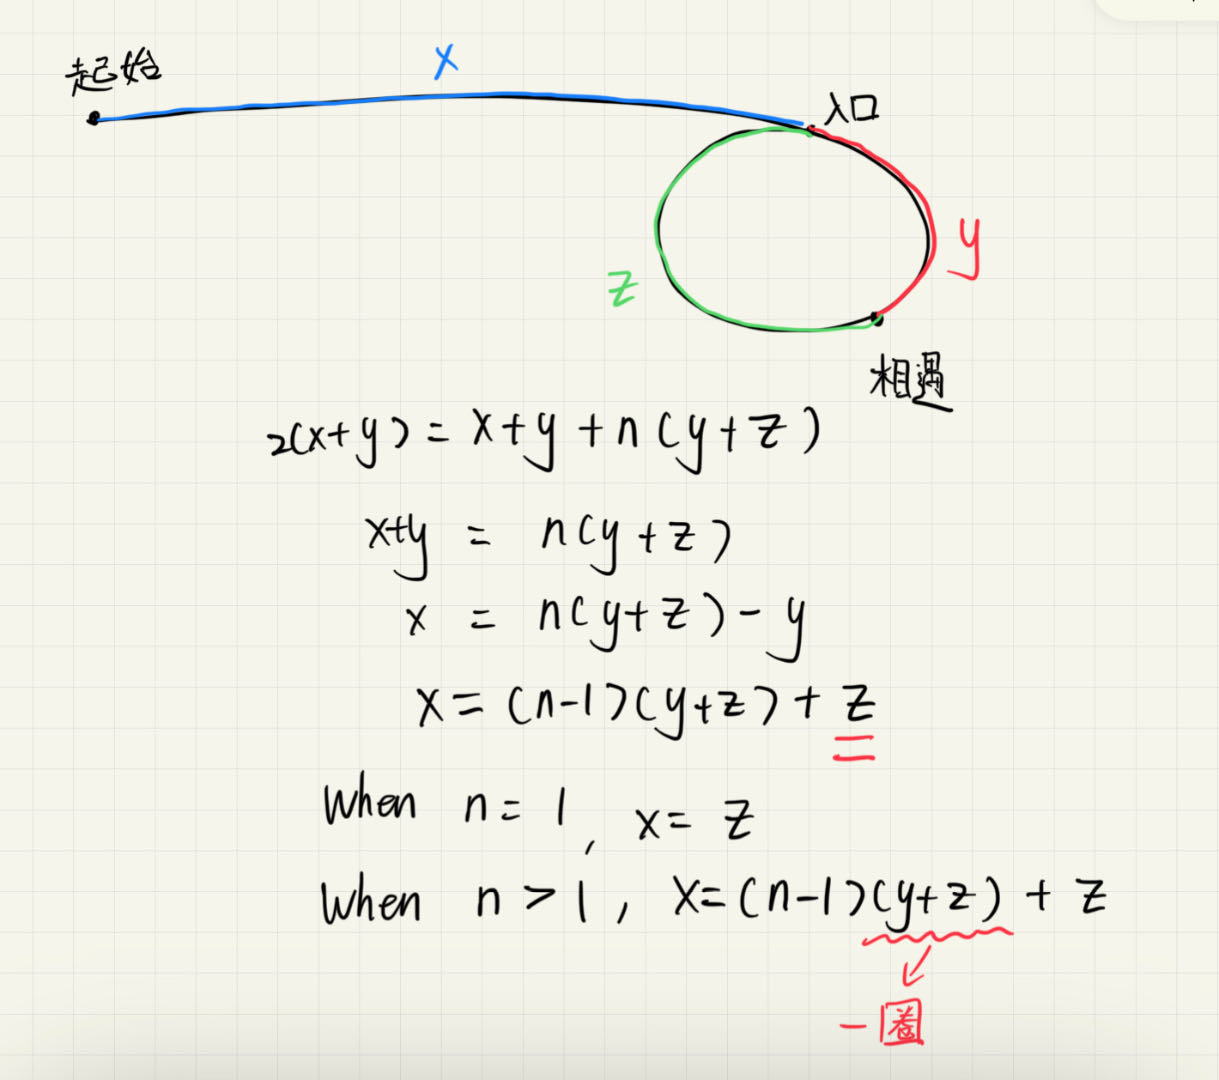 起始
x
入口
y
z
相遇
2(x+y) = x+y+n(y+z)
x+y = n(y+z)
x = n(y+z)-y
x = (n-1)(y+z)+z
When n=1, x=z
When n>1, x=(n-1)(y+z)+z
一圈